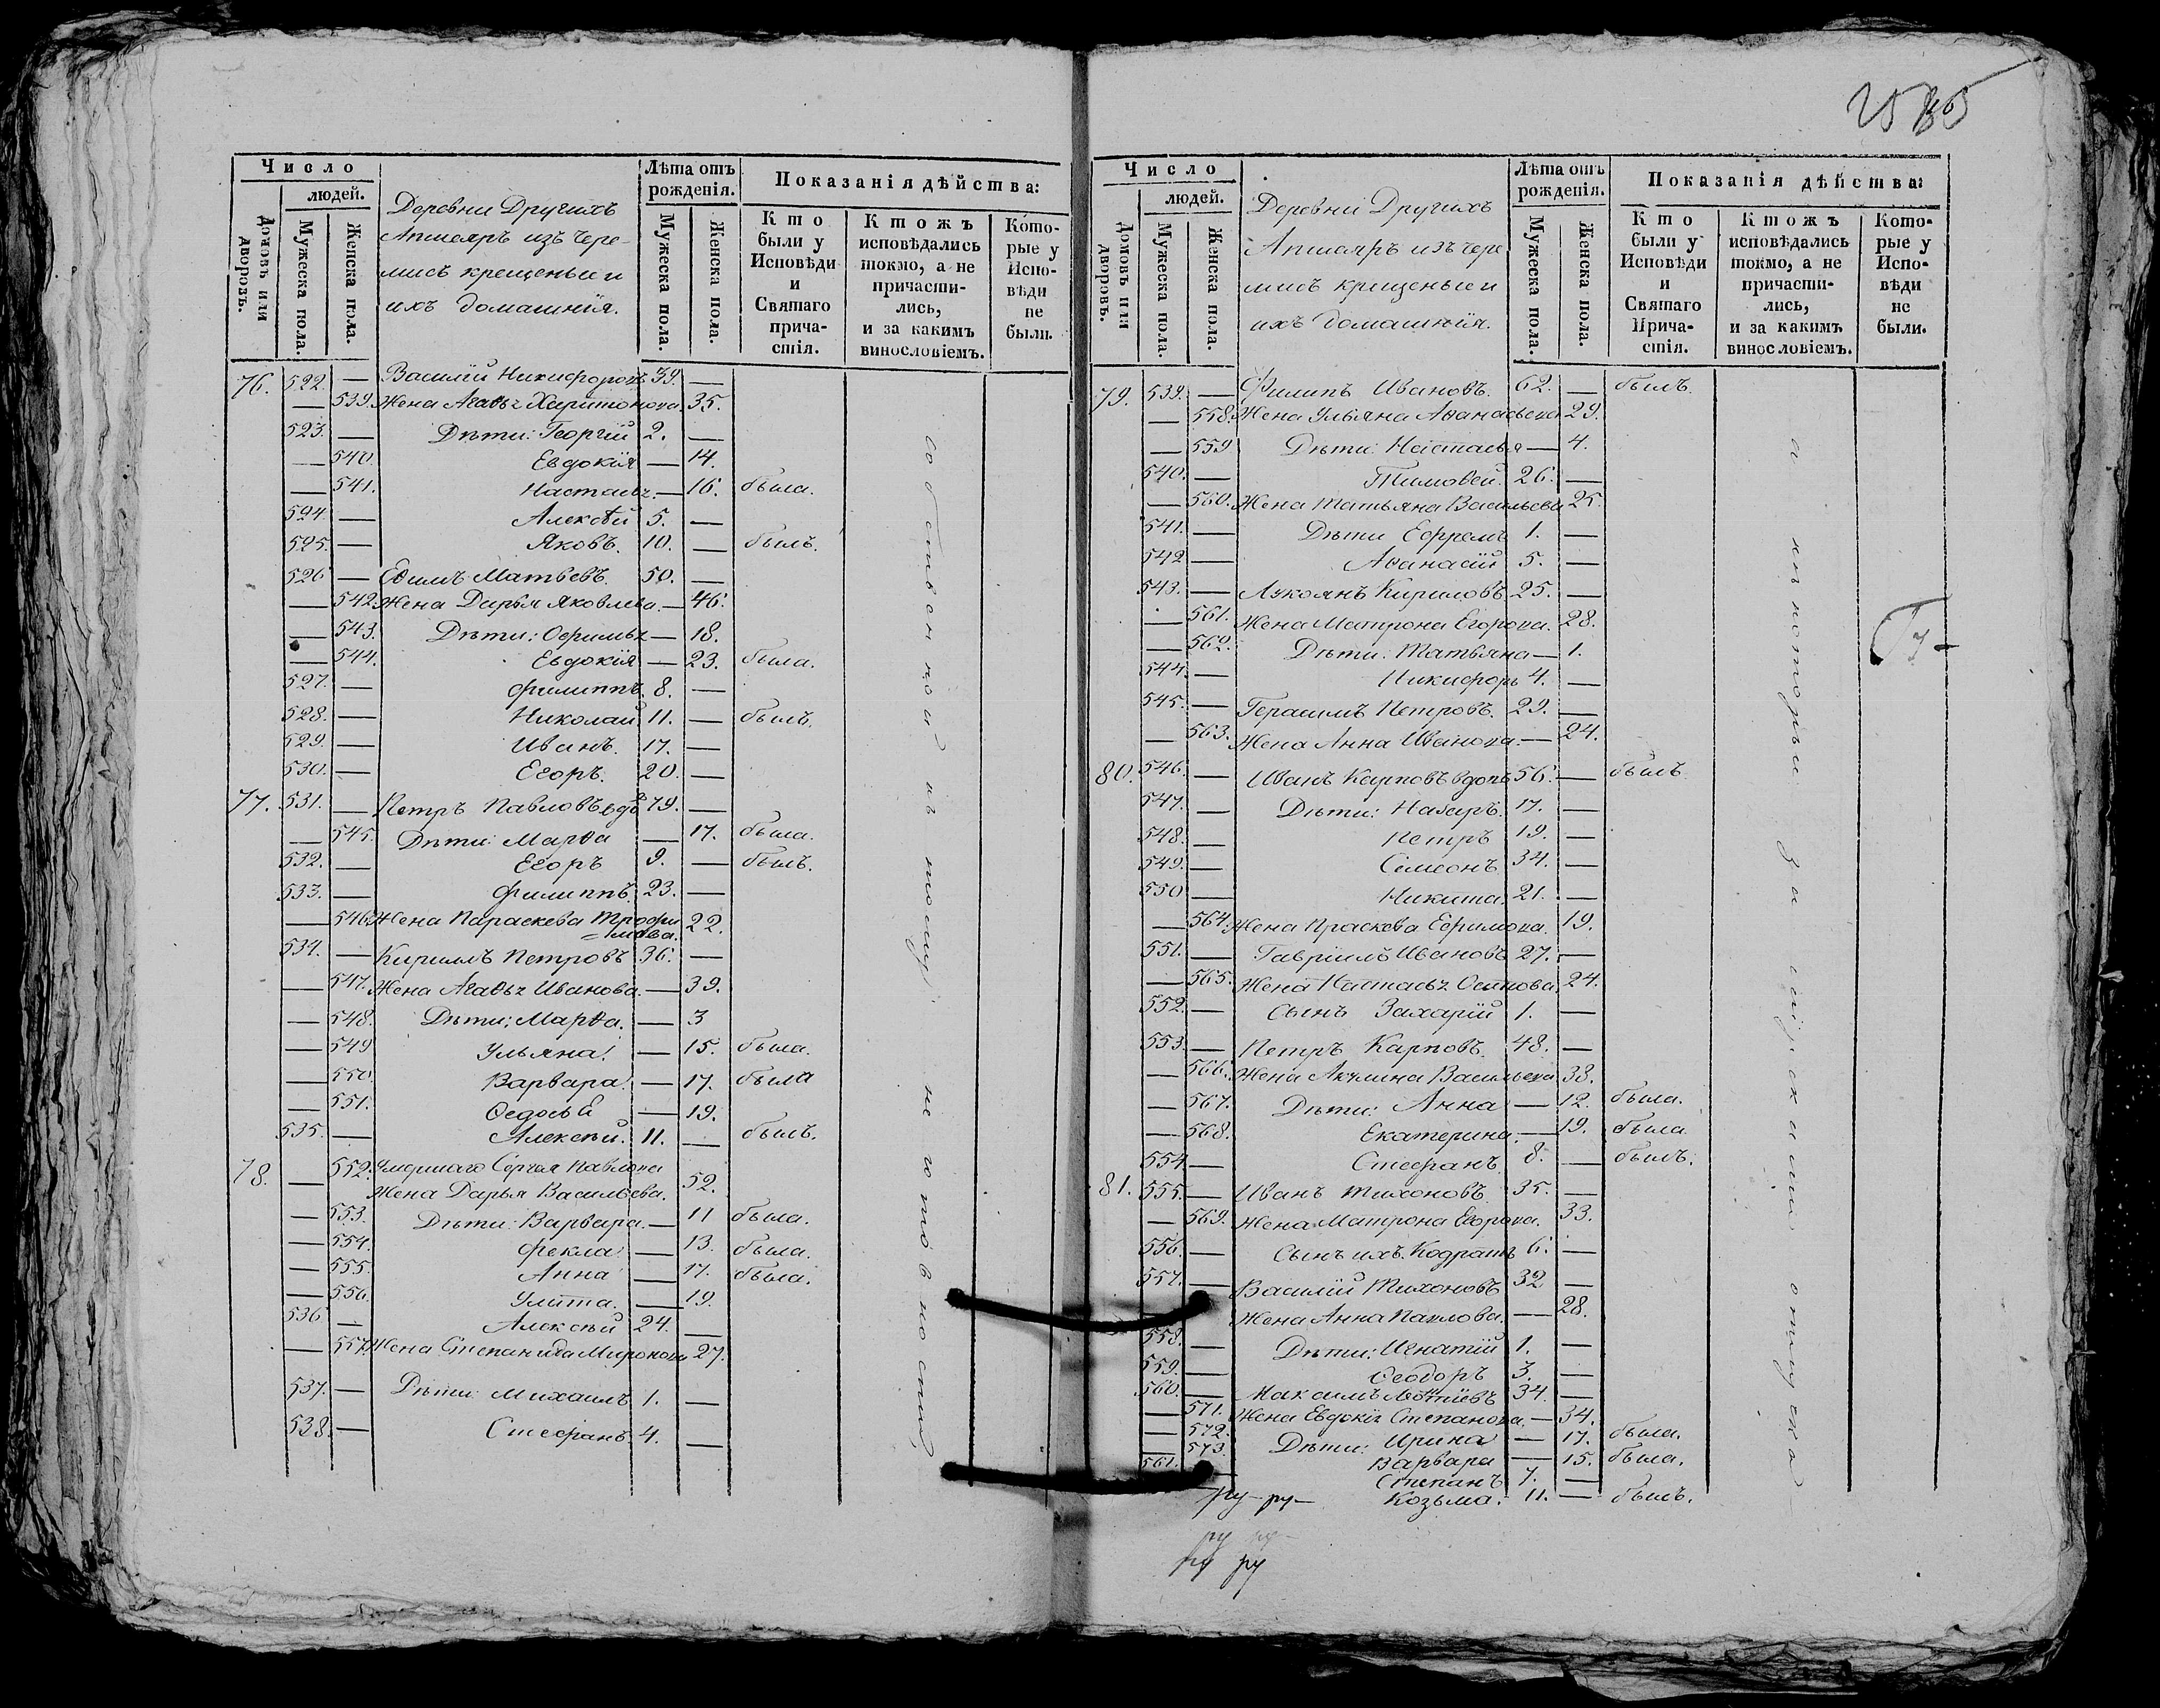 Число
людей.
Домовъ или дворовъ.
Мужеска пола.
Женска пола.
Деревни Другихъ
Апшеяръ изъ чере-
мисъ крещеныи и
ихъ домашнія.
Лѣта отъ
рожденія.
Мужеска пола.
Женска пола.
Показанія дѣйства:
Кто
были у
Исповѣди
и
Святаго
прича-
стія.
Ктожъ
исповѣдались
токмо, а не
причасти-
лись,
и за какимъ
винословіемъ.
Кото-
рые у
Испо-
вѣди
не
были.
76. 522. — Василій Никифоровъ 39. —
— 539. Жена Агаѳья Харитонова 35.
523. — Дѣти: Георгій 2. —
— 540. Евдокія — 14.
— 541. Настасья — 16. была.
524. — Алексѣй 5. —
525. — Яковъ. 10. — былъ.
526 — Матвѣевъ. 50. —
— 542. Жена Дарья Яковлева. — 46.
— 543. Дѣти: — 18.
— 544. Евдокія — 23. была.
527. — Филиппъ. 8. —
528. — Николай 11. — былъ.
529. — Иванъ. 17. —
530. — Егоръ. 20. —
77. 531. — Петръ Павловъ вдъ 79. —
— 545. Дѣти: Марѳа — 17. была.
532. — Егоръ 9. — былъ.
533. — Филиппъ 23. —
— 546. Жена Параскева Трофи
мова. 22.
534. — Кирилъ Петровъ 36. —
— 547. Жена Агаѳья Иванова. — 39.
— 548. Дѣти: Марѳа. — 3
— 549 Ульяна. — 15. была.
— 550. Варвара. — 17. была
— 551. Ѳедосья — 19.
535. — Алексѣй. 11. — былъ.
78. — 552. Умершаго Сергея Павлова
Жена Дарья Васильева. 52.
— 553. Дѣти: Варвара. — 11 была.
— 554. Фекла — 13. была.
— 555. Анна — 17. была.
— 556. Улита. — 19.
536 — Алексѣй 24. —
— 557. Жена Степанида Миронова 27.
537. — Дѣти: Михаилъ 1. —
538. — Стефанъ. 4. —
Число
людей.
Домовъ или дворовъ.
Мужеска пола.
Женска пола.
Деревни Другихъ
Апшаяръ изъ чере
мисъ крещеныи и
ихъ домашнія.
Лѣта отъ
рожденія.
Мужеска пола.
Женска пола.
Показанія дѣйства:
Кто
были у
Исповѣди
и
Святаго
Прича-
стія.
Ктожъ
исповѣдались
токмо, а не
причасти-
лись,
и за какимъ
винословіемъ.
Кото-
рые у
Испо-
вѣди
не
были.
79. 539. — Филипъ Ивановъ. 62. — былъ.
— 558. Жена Ульяна Аѳанасьева 29.
— 559 Дѣти: Настасья — 4.
540. — Тимоѳей. 26. —
— 560. Жена Татьяна Васильева 25.
541. — Дѣти Ефремъ 1. —
542 — Аѳанасій 5. —
543. — Лукоянъ Кириловъ. 25. —
— 561. Жена Матрона Егорова. 28.
— 562. Дѣти: Татьяна — 1.
544. — Никифоръ 4. —
545. — Герасимъ Петровъ. 29. —
— 563. Жена Анна Иванова. — 24.
80. 546. — Иванъ Карповъ вдовъ 56. — былъ.
547. — Дѣти: Назаръ. 17. —
548. — Петръ 19. —
549. — Семеонъ 34. —
550 — Никита. 21. —
— 564. Жена Праскева Ефимова. 19.
551. — Гавріилъ Ивановъ 27. —
— 565. Жена Настасья Осипова 24.
552. — Сынъ Захарій 1. —
553. — Петръ Карповъ. 48. —
— 566. Жена Акулина Васильева 38.
— 567. Дѣти: Анна — 12. была.
— 568. Екатерина. — 19. была
554. — Стефанъ 8. — былъ.
81. 555. — Иванъ Тихоновъ. 35. —
— 569. Жена Матрона Егорова. 33.
556. — Сынъ ихъ. Кодратъ 6. —
557. — Василій Тихоновъ 32 —
Жена Анна Павлова. — 28.
558. — Дѣти: Игнатій 1. —
559. — Ѳеодоръ 3. —
560. — Максимъ 34. —
— 571. Жена Евдокія Степанова. — 34.
— 572. Дѣти: Ирина — 17. была.
— 573. Варвара — 15. была.
561. Степанъ 7. —
Козьма. 11. — былъ.